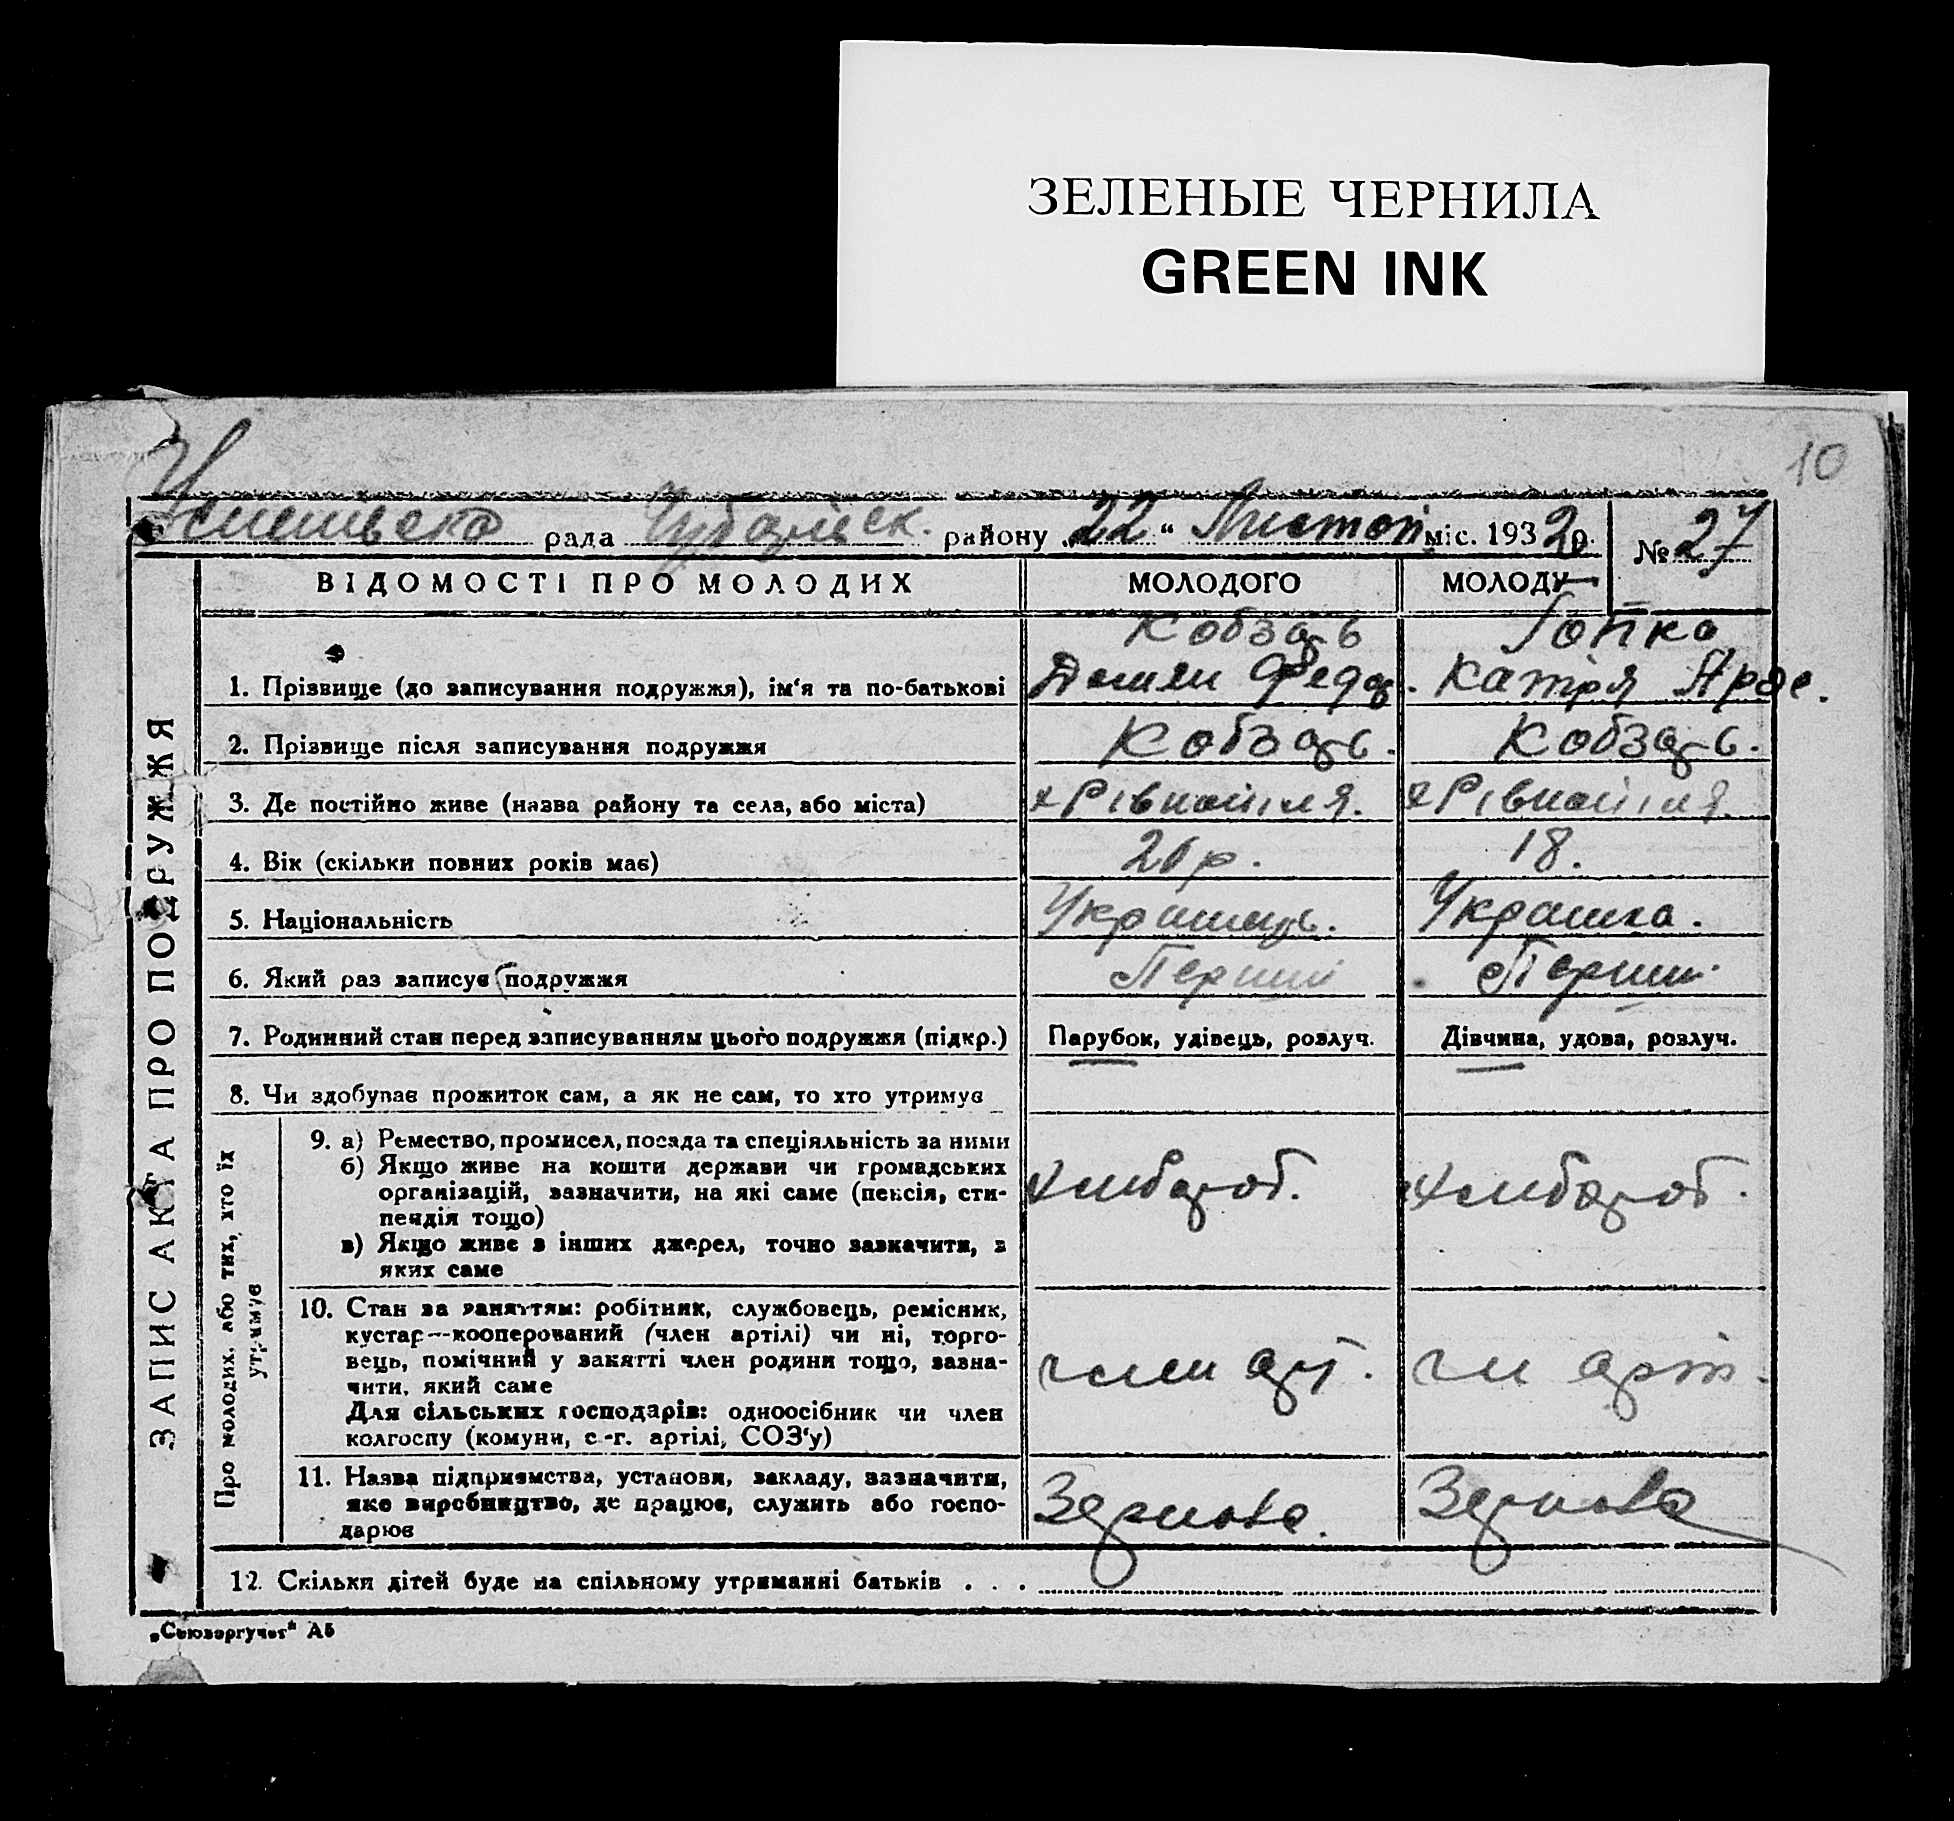 ЗЕЛЕНЫЕ ЧЕРНИЛА
GREEN INK
10
рада району „22“ Листоп міс. 1932 р. № 27
ЗАПИС АКТА ПРО ПОДРУЖЖЯ
ВІДОМОСТІ ПРО МОЛОДИХ МОЛОДОГО МОЛОДУ
Кобзарь Гопка
1. Прізвище (до записування подружжя), ім‘я та по-батькові Демян Федор. Катря
2. Прізвище після записування подружжя Кобзарь. Кобзарь.
3. Де постійно живе (назва району та села, або міста) х Рівнопілля. х Рівнопілля.
4. Вік (скільки повних років має) р. 18.
5. Національність Українець. Українка.
6. Який раз записує подружжя Перший Перший
7. Родинний стан перед записуванням цього подружжя (підкр.) Парубок, удівець, розлуч. Дівчина, удова, розлуч.
8. Чи здобуває прожиток сам, а як не сам, то хто утримує
Про молодих, або тих, хто їх утримує
9. а) Ремество, промисел, посада та спеціяльність за ними
б) Якщо живе на кошти держави чи громадських
організацій, зазначити, на які саме (пенсія, сти-
пендія тощо)
в) Якщо живе з інших джерел, точно зазначити, з
яких саме
хлибороб. хлибороб.
10. Стан за заняттям: робітник, службовець, ремісник,
кустар—кооперований (член артілі) чи ні, торго-
вець, помічний у занятті член родини тощо, зазна-
чити, який саме
Для сільських господарів: одноосібник чи член
колгоспу (комуни, с.-г. артілі, СОЗ‘у)
член арт. чл арт.
11. Назва підприємства, установи, закладу, зазначити,
яке виробництво, де працює, служить або госпо-
дарює
12. Скільки дітей буде на спільному утриманні батьків . . .
„Союзоргучет“ А5